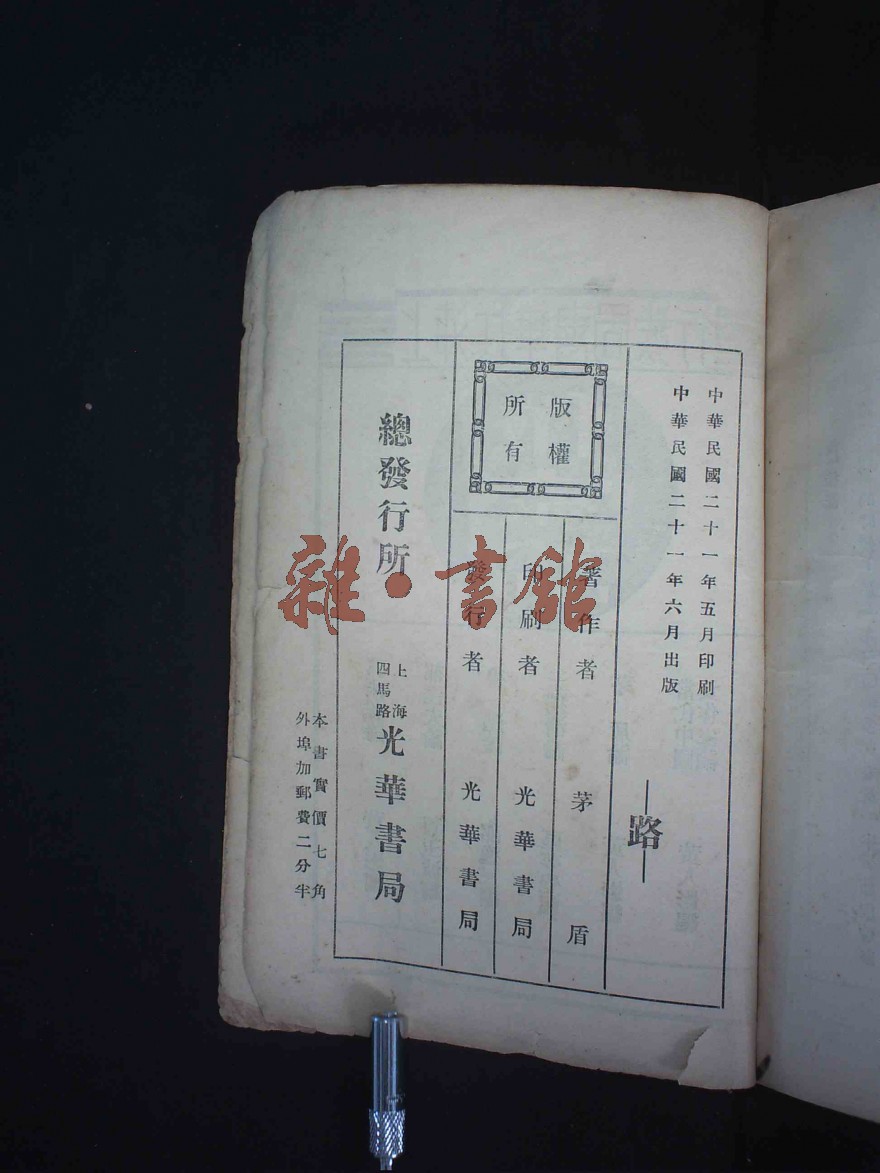 中華民國二十一年五月印刷
中華民國二十一年六月出版
路
版權
所有
著作者 茅盾
印刷者 光華書局
發行者 光華書局
總發行所 上海四馬路 光華書局
本書實價七角
外埠加郵費二分半
雜·書館